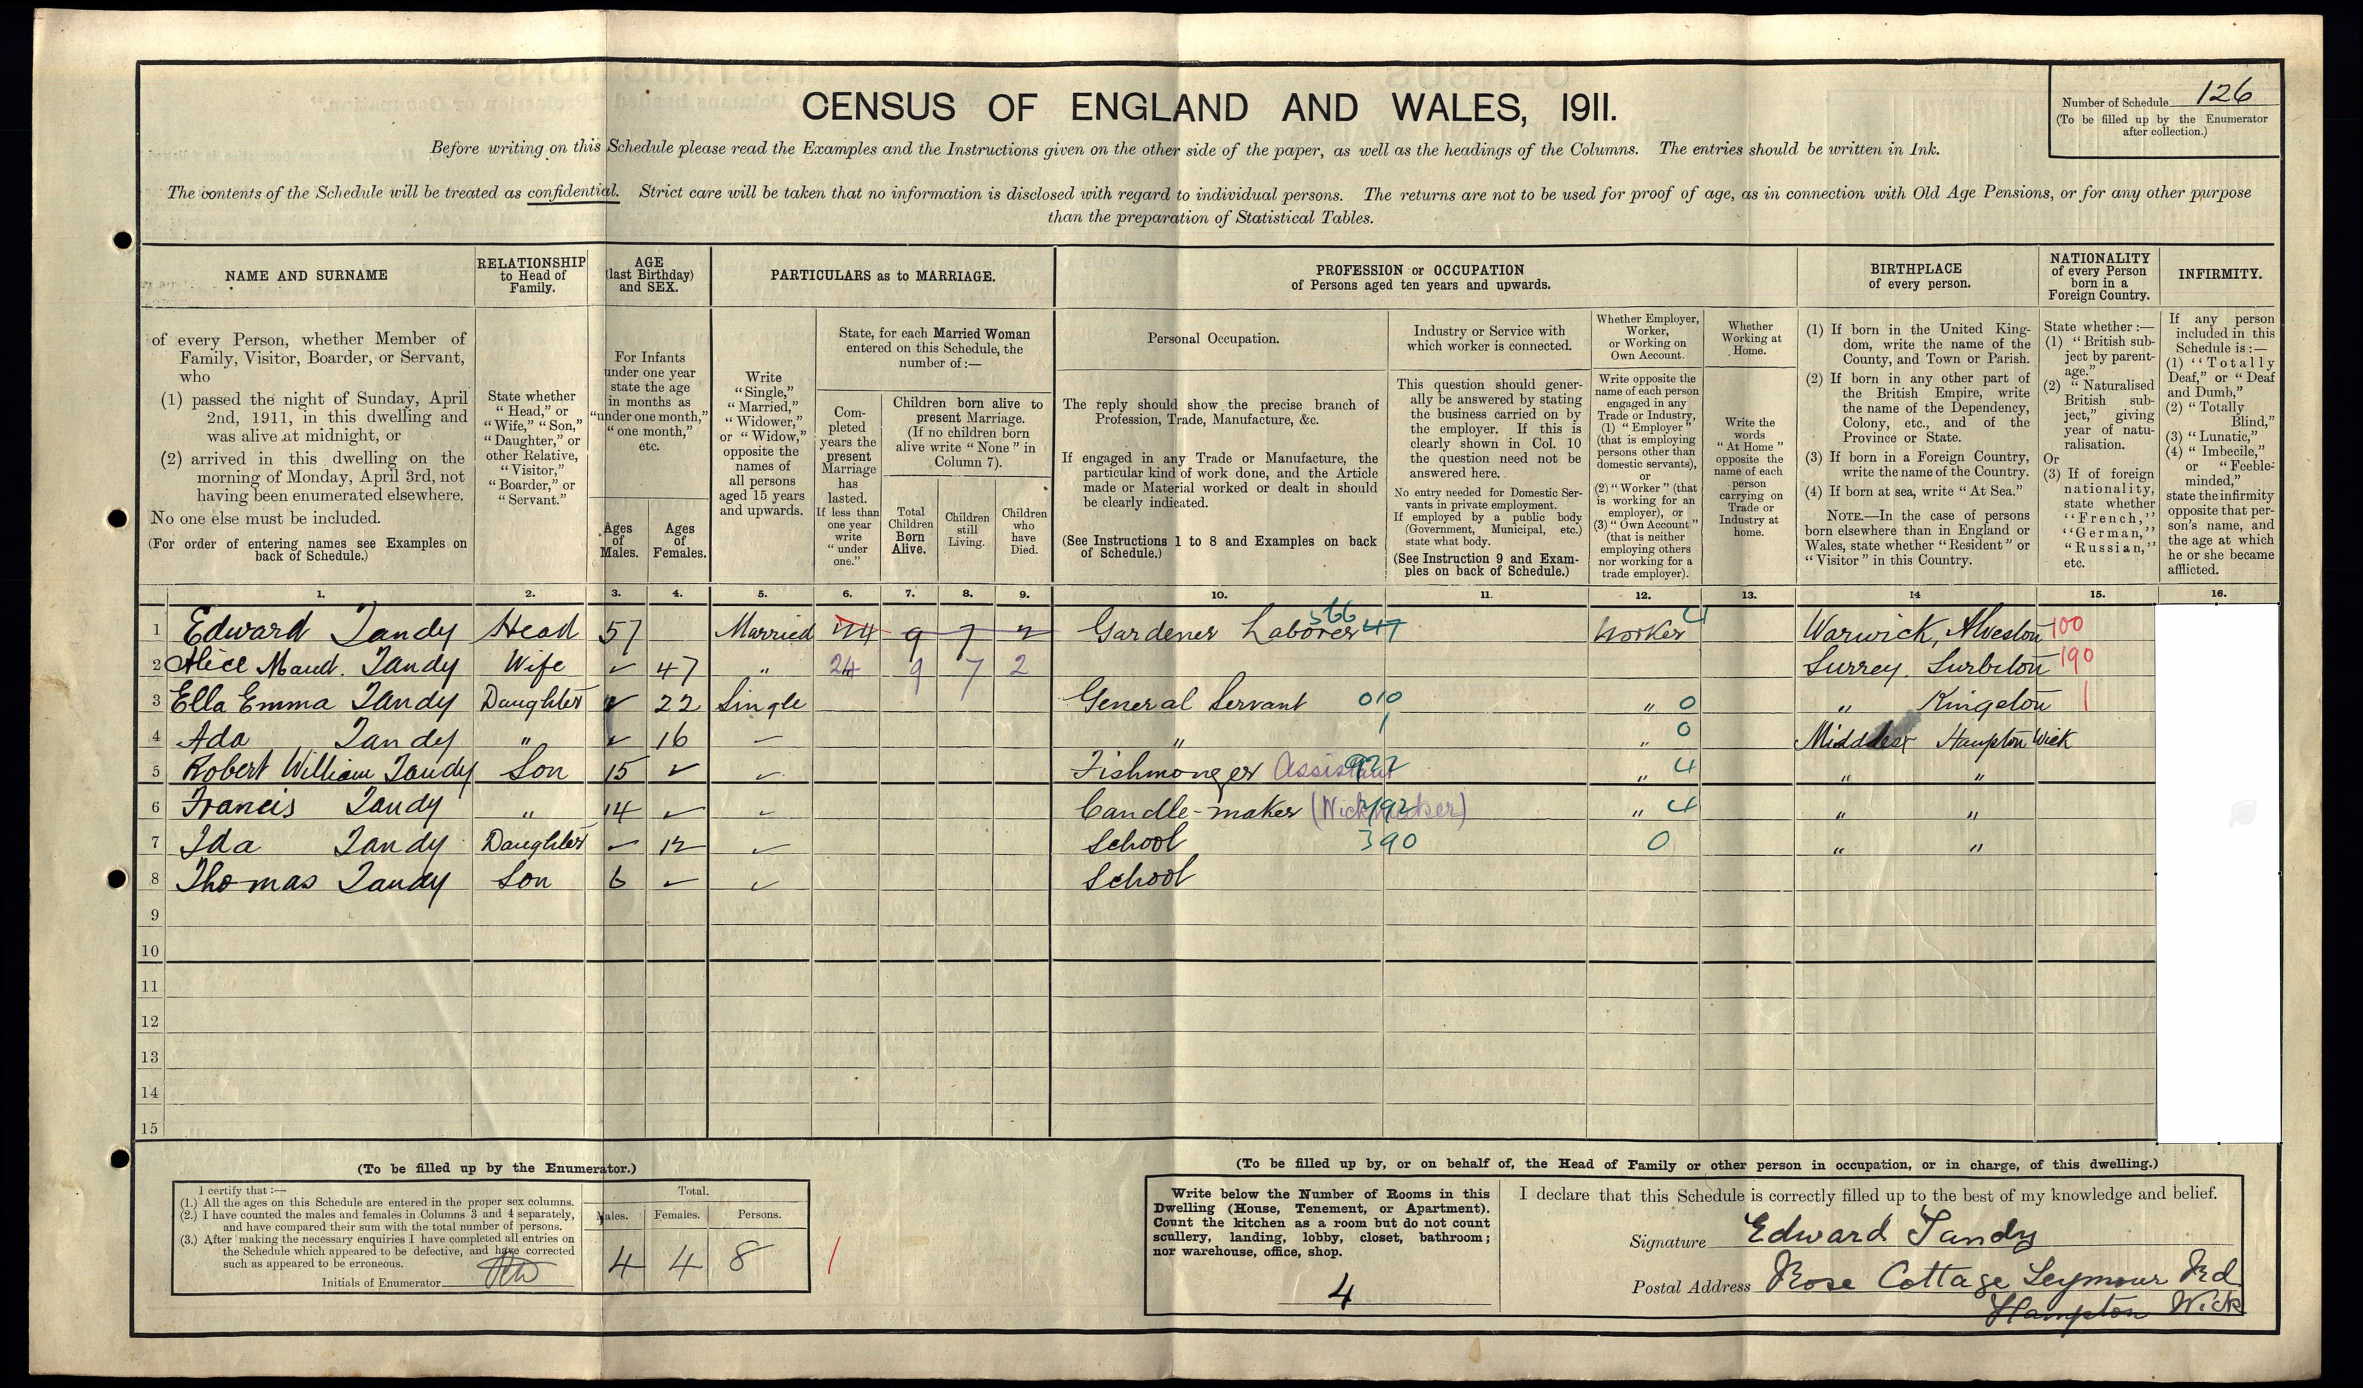 CENSUS OF ENGLAND AND WALES, 1911.
Number of Schedule 126
(To be filled up by the Enumerator
after collection.)
Before writing on this Schedule please read the Examples and the Instructions given on the other side of the paper, as well as the headings of the Columns. The entries should be written in Ink.
The contents of the Schedule will be treated as confidential. Strict care will be taken that no information is disclosed with regard to individual persons. The returns are not to be used for proof of age, as in connection with Old Age Pensions, or for any other purpose
than the preparation of Statistical Tables.
NAME AND SURNAME
of every Person, whether Member of
Family, Visitor, Boarder, or Servant,
who
(1) passed the night of Sunday, April
2nd, 1911, in this dwelling and
was alive at midnight, or
(2) arrived in this dwelling on the
morning of Monday, April 3rd, not
having been enumerated elsewhere.
No one else must be included.
(For order of entering names see Examples on
back of Schedule.)
RELATIONSHIP
to Head of
Family.
State whether
"Head," or
"Wife," "Son,"
"Daughter," or
other Relative,
"Visitor,"
"Boarder," or
"Servant."
AGE
(last Birthday)
and SEX.
For Infants
under one year
state the age
in months as
"under one month,"
"one month,"
etc.
Ages
of
Males.
Ages
of
Females.
PARTICULARS as to MARRIAGE.
Write
"Single,"
"Married,"
"Widower,"
or "Widow,"
opposite the
names of
all persons
aged 15 years
and upwards.
State, for each Married Woman
entered on this Schedule, the
number of:—
Com-
pleted
years the
present
Marriage
has
lasted.
If less than
one year
write
"under
one."
Children born alive to
present Marriage.
(If no children born
alive write "None" in
Column 7).
Total
Children
Born
Alive.
Children
still
Living.
Children
who
have
Died.
PROFESSION or OCCUPATION
of Persons aged ten years and upwards.
Personal Occupation.
The reply should show the precise branch of
Profession, Trade, Manufacture, &c.
If engaged in any Trade or Manufacture, the
particular kind of work done, and the Article
made or Material worked or dealt in should
be clearly indicated.
(See Instructions 1 to 8 and Examples on back
of Schedule.)
Industry or Service with
which worker is connected.
This question should gener-
ally be answered by stating
the business carried on by
the employer. If this is
clearly shown in Col. 10
the question need not be
answered here.
No entry needed for Domestic Ser-
vants in private employment.
If employed by a public body
(Government, Municipal, etc.)
state what body.
(See Instruction 9 and Exam-
ples on back of Schedule.)
Whether Employer,
Worker,
or Working on
Own Account.
Write opposite the
name of each person
engaged in any
Trade or Industry,
(1) "Employer"
(that is employing
persons other than
domestic servants),
or
(2) "Worker" (that
is working for an
employer), or
(3) "Own Account"
(that is neither
employing others
nor working for a
trade employer).
Whether
Working at
Home.
Write the
words
"At Home"
opposite the
name of each
person
carrying on
Trade or
Industry at
home.
BIRTHPLACE
of every person.
(1) If born in the United King-
dom, write the name of the
County, and Town or Parish.
(2) If born in any other part of
the British Empire, write
the name of the Dependency,
Colony, etc., and of the
Province or State.
(3) If born in a Foreign Country,
write the name of the Country.
(4) If born at sea, write "At Sea."
NOTE.—In the case of persons
born elsewhere than in England or
Wales, state whether "Resident" or
"Visitor" in this Country.
NATIONALITY
of every Person
born in a
Foreign Country.
State whether:—
(1) "British sub-
ject by parent-
age."
(2) "Naturalised
British sub-
ject," giving
year of natu-
ralisation.
Or
(3) If of foreign
nationality,
state whether
"French,"
"German,"
"Russian,"
etc.
INFIRMITY.
If any person
included in this
Schedule is:—
(1) "Totally
Deaf," or "Deaf
and Dumb,"
(2) "Totally
Blind,"
(3) "Lunatic,"
(4) "Imbecile,"
or "Feeble-
minded,"
state the infirmity
opposite that per-
son's name, and
the age at which
he or she became
afflicted.
1. 2. 3. 4. 5. 6. 7. 8. 9. 10. 11. 12. 13. 14 15. 16.
1 Edward Tandy Head 57 Married 24 9 7 2 Gardener Laborer 366 47 Worker 4 Warwick, Alveston 100
2 Alice Maud. Tandy Wife 47 " 24 9 7 2 Surrey. Surbiton 190
3 Ella Emma Tandy Daughter 22 Single General Servant 010 " 0 " Kingston 1
4 Ada Tandy " 16 " 1 " 0 Middlesex Hampton Wick
5 Robert William Tandy Son 15 Fishmonger Assistant " 4 " "
6 Francis Tandy " 14 Candle-maker (Wick maker) " 4 " "
7 Ida Tandy Daughter 12 School 390 0 " "
8 Thomas Tandy Son 6 School
9
10
11
12
13
14
15
(To be filled up by the Enumerator.)
I certify that:—
(1.) All the ages on this Schedule are entered in the proper sex columns.
(2.) I have counted the males and females in Columns 3 and 4 separately,
and have compared their sum with the total number of persons.
(3.) After making the necessary enquiries I have completed all entries on
the Schedule which appeared to be defective, and have corrected
such as appeared to be erroneous.
Initials of Enumerator
Total.
Males. Females. Persons.
4 4 8
1
(To be filled up by, or on behalf of, the Head of Family or other person in occupation, or in charge, of this dwelling.)
Write below the Number of Rooms in this
Dwelling (House, Tenement, or Apartment).
Count the kitchen as a room but do not count
scullery, landing, lobby, closet, bathroom;
nor warehouse, office, shop.
4
I declare that this Schedule is correctly filled up to the best of my knowledge and belief.
Signature Edward Tandy
Postal Address Rose Cottage Seymour Rd
Hampton Wick